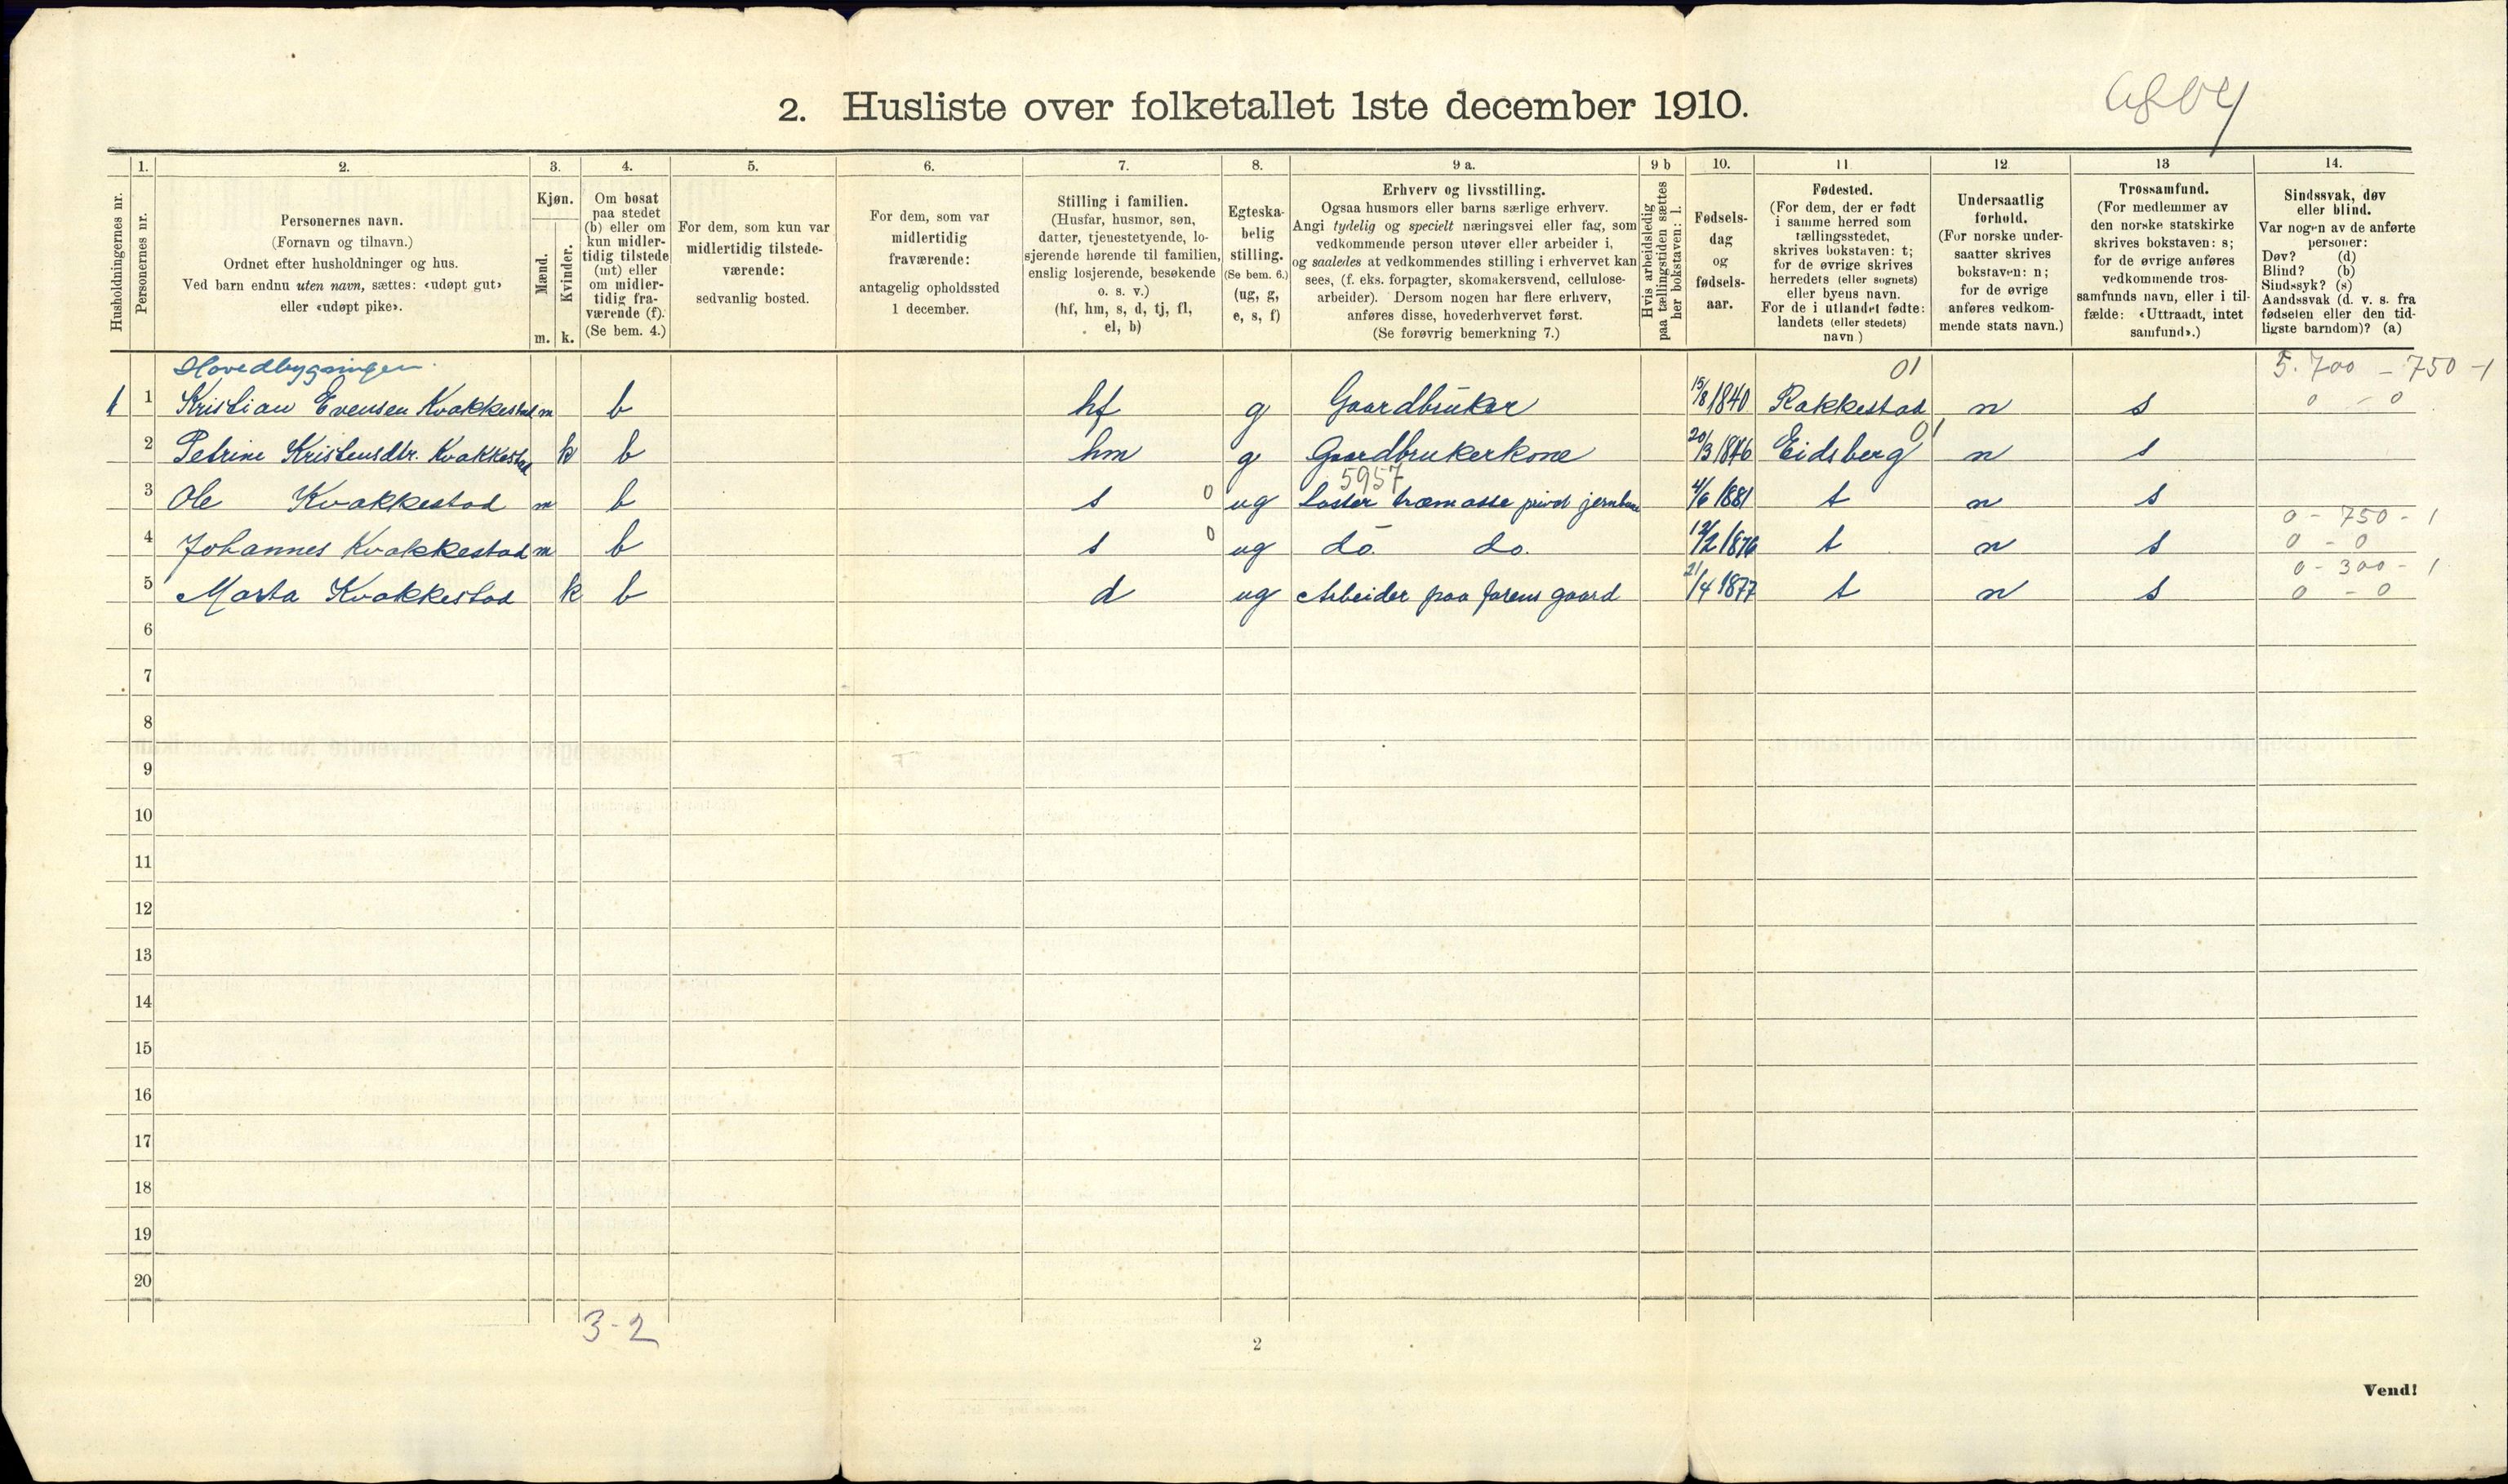 2. Husliste over folketallet 1ste december 1910.
1. 2. 3. 4. 5. 6. 7. 8. 9 a. 9 b 10. 11 12 13 14.
Husholdningernes nr.
Personernes nr.
Personernes navn.
(Fornavn og tilnavn.)
Ordnet efter husholdninger og hus.
Ved barn endnu uten navn, sættes: «udøpt gut»
eller «udøpt pike».
Kjøn.
Mænd.
Kvinder.
m. k.
Om bosat
paa stedet
(b) eller om
kun midler-
tidig tilstede
(mt) eller
om midler-
tidig fra-
værende (f).
(Se bem. 4.)
For dem, som kun var
midlertidig tilstede-
værende:
sedvanlig bosted.
For dem, som var
midlertidig
fraværende:
antagelig opholdssted
1 december.
Stilling i familien.
(Husfar, husmor, søn,
datter, tjenestetyende, lo-
sjerende hørende til familien,
enslig losjerende, besøkende
o. s. v.)
(hf, hm, s, d, tj, fl,
el, b)
Egteska-
belig
stilling.
(Se bem. 6.)
(ug, g,
e, s, f)
Erhverv og livsstilling.
Ogsaa husmors eller barns særlige erhverv.
Angi tydelig og specielt næringsvei eller fag, som
vedkommende person utøver eller arbeider i,
og saaledes at vedkommendes stilling i erhvervet kan
sees, (f. eks. forpagter, skomakersvend, cellulose-
arbeider). Dersom nogen har flere erhverv,
anføres disse, hovederhvervet først.
(Se forøvrig bemerkning 7.)
Hvis arbeidsledig
paa tællingstiden sættes
her bokstaven: l.
Fødsels-
dag
og
fødsels-
aar.
Fødested.
(For dem, der er født
i samme herred som
tællingsstedet,
skrives bokstaven: t;
for de øvrige skrives
herredets (eller sognets)
eller byens navn.
For de i utlandet fødte:
landets (eller stedets)
navn.)
Undersaatlig
forhold.
(For norske under-
saatter skrives
bokstaven: n;
for de øvrige
anføres vedkom-
mende stats navn.)
Trossamfund.
(For medlemmer av
den norske statskirke
skrives bokstaven: s;
for de øvrige anføres
vedkommende tros-
samfunds navn, eller i til-
fælde: «Uttraadt, intet
samfund».)
Sindssvak, døv
eller blind.
Var nogen av de anførte
personer:
Døv? (d)
Blind? (b)
Sindssyk? (s)
Aandssvak (d. v. s. fra
fødselen eller den tid-
ligste barndom)? (a)
Hovedbygningen. 01 5.700 - 750 - 1
1 1 Kristian Evensen Kvakkestad m b hf g Gaardbruker 15/8 1840 Rakkestad n s 0 - 0
01
2 Petrine Kristensdtr. Kvakkestad k b hm g Gaardbrukerkone 20/3 1846 Eidsberg n s
5957
3 Ole Kvakkestad m b s 0 ug Laster træmasse privat jernbane 4/6 1881 t n s
0 - 750 - 1
4 Johannes Kvakkestad m b s 0 ug do. do. 12/2 1876 t n s 0 - 0
0 - 300 - 1
5 Marta Kvakkestad k b d ug Arbeider paa farens gaard 21/4 1877 t n s 0 - 0
6
7
8
9
10
11
12
13
14
15
16
17
18
19
20
3-2
2
Vend!